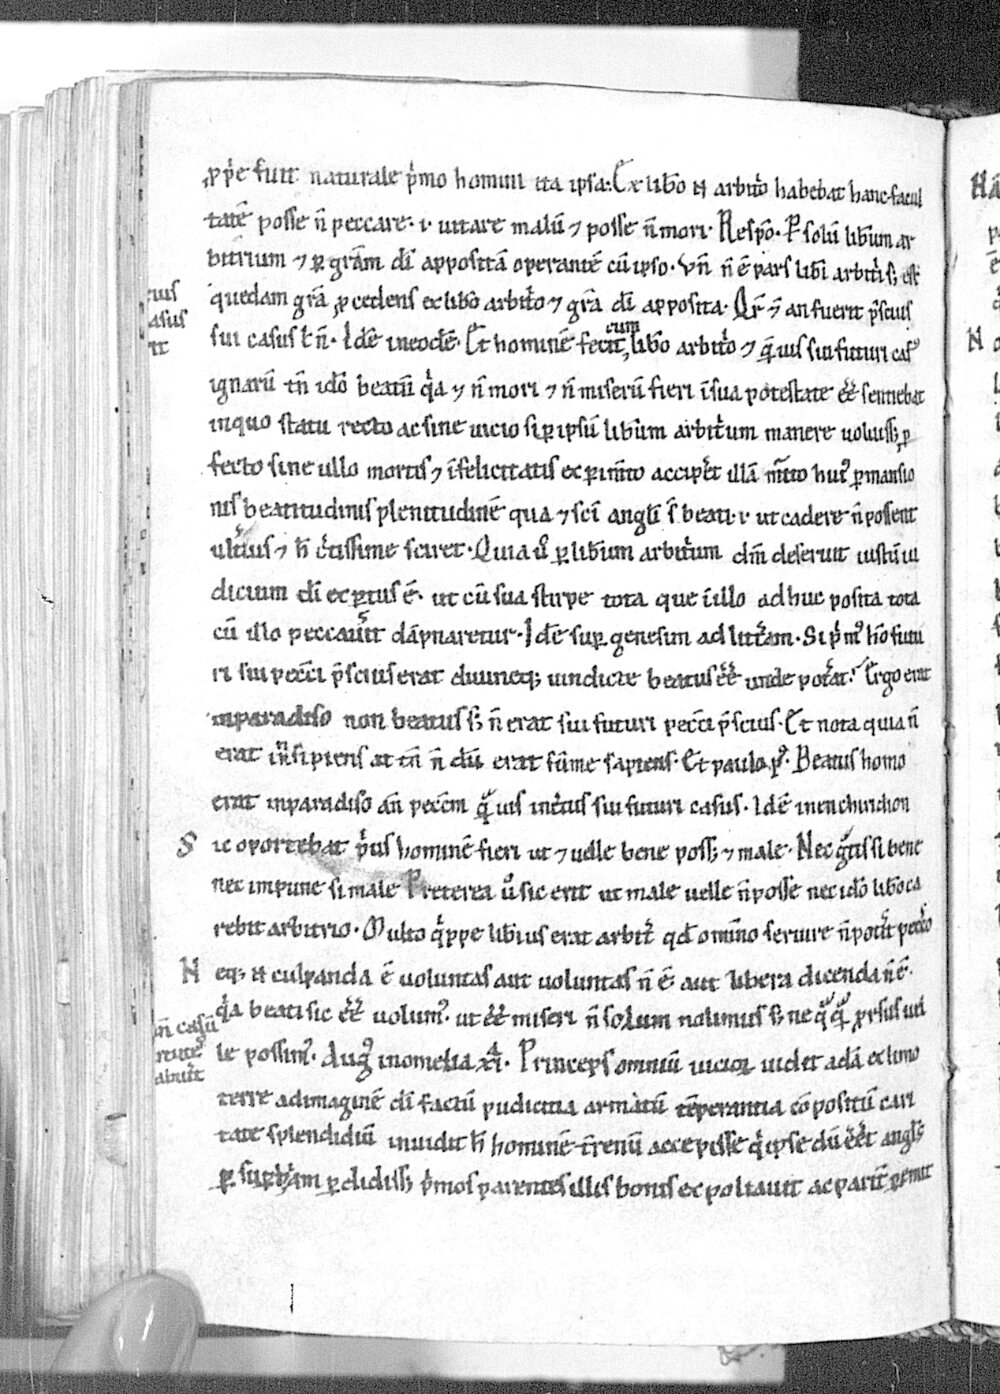 ꝓp̄e fuit naturale p̍mo homini ita ipsa. Ex lib̄o n̄ arbitro habebat hanc facul
tatē posse n̄ peccare. i. uitare malū ⁊ posse n̄ mori. Respō. P̱ solū libm̄ ar
bitrium ⁊ ꝑ gr̄am dī appositā operantē cū ipso. vn̄ n̄ ē pars lib̄i arbitrii s; est
quedam gr̄a p̱cedens ex lib̄o arbitro ⁊ gr̄a dī apposita. Qr̄ ⁊ an fuerit p̄scius
sui casus ł n̄. Idē in eodē. Et hominē fecit cum lib̄o arbitro ⁊ q̄muis sui futuri cas᷒
ignarū tn̄ idō beatū q̍a ⁊ n̄ mori ⁊ n̄ miserū fieri ī sua potestate ēē sentiebat
in quo statu recto ac sine uicio si ꝑ ipsū libm̄ arbitr̄um manere uoluiss; p̱
fecto sine ullo mortis ⁊ īfelicitatis exꝑim̄to acciꝑet illā m̄ito hui᷒ ꝑmansio
nis beatitudinis plenitudinē qua ⁊ sc̄i angli s̄ beati. i. ut cadere n̄ possent
ult̄ius ⁊ h̄ c̄tissime sciret. Quia u͛ ꝑ libm̄ arbitr̄um dm̄ deseruit iustū iu
dicium dī exꝑtus ē. ut cū sua stirpe tota que ī illo adhuc posita tota
cū illo peccauit dāpnaretur. Idē sup̱ genesim ad litt̄am. Si p̍m᷒ hō futu
ri sui pecc̄i p̄scius erat diuineq; uindicte beatus ēē unde pot̄at. Ergo erat
in paradiso non beatus s; n̄ erat sui futuri pecc̄i p̄scius. Et nota quia n̄
erat insipiens at tn̄ n̄ dū erat sūme sapiens. Et paulo p᷒. Beatus homo
erat in paradiso an̄ pecc̄m q̄muis inc̄tus sui futuri casus. Idē in enchiridion
S ic oportebat p̍us hominē fieri ut ⁊ uelle bene poss; ⁊ male. Nec gͣtis si bene
nec impune si male Preterea u͛ sic erit ut male uelle n̄ posse nec idō lib̄o ca
rebit arbitrio. Multo qͥppe lib̄ius erat arbitr̄ qd̄ omīno seruire n̄ pot̄it pecc̄o
N eq; n̄ culpanda ē uoluntas aut uoluntas n̄ ē aut libera dicenda n̄ ē.
q̍a beati sic ēē uolum᷒. ut ēē miseri n̄ solum nolimus s; neqͣqͣ prsus uel
le possim᷒. Aug᷒ in omelia xi. Princeps omniū uicioꝝ uidit adā ex limo
terre ad imaginē dī factū pudicitia armatū tēperantia cōpositū cari
tate splendidū inuidit h̄ hominē t̄renū accepisse q̍ ipse dū ēēt angl᷒
ꝑ suꝑbiam ꝑdidiss; p̍mos parentes illis bonis expoliauit ac parit̄ ꝑemit